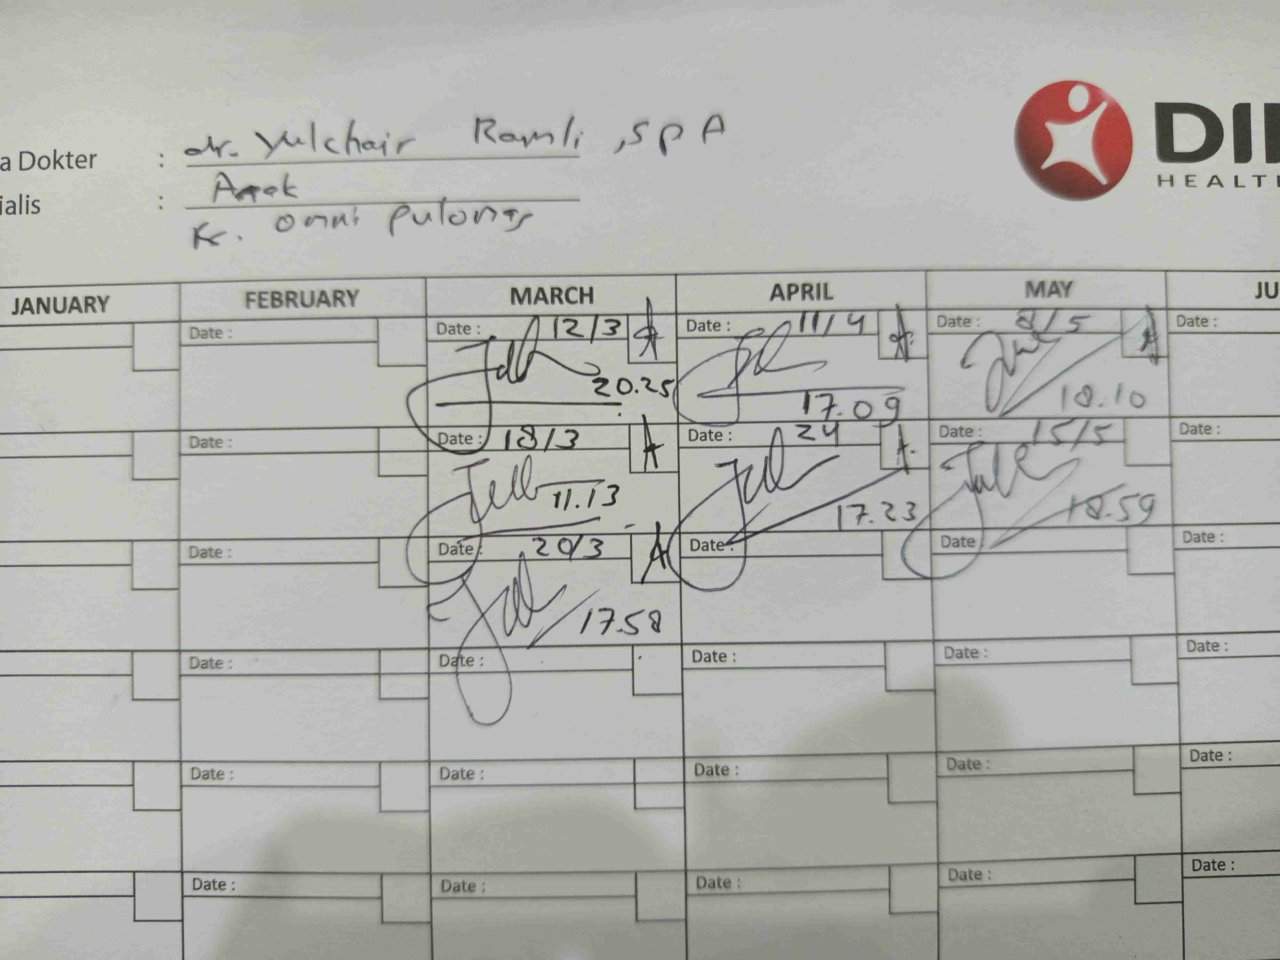 a Dokter : dr. Yulchair Ramli, SpA
ialis : Anak
RS. Omni Pulomas
DI
HEALT
JANUARY FEBRUARY MARCH APRIL MAY JU
Date : Date : 12/3 A Date : 11/4 A Date : 8/5 A Date :
20.25 17.09 18.10
Date : Date : 18/3 A Date : 24 A Date : 15/5 Date :
11.13 17.23 18.59
Date : Date : 20/3 A Date : Date Date :
17.58
Date : Date : Date : Date : Date :
Date : Date : Date : Date : Date :
Date : Date : Date : Date : Date :